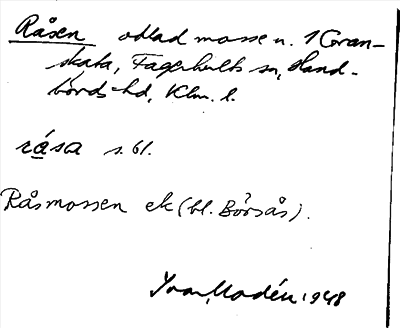 Råsen odlad mosse n. 1 Gran-
skata, Fagerhults sn, Hand-
börds hd, Klm. l.
råsa s. 61.
Råsmossen ek (bl. Börsås).
Ivar Modéer 1948